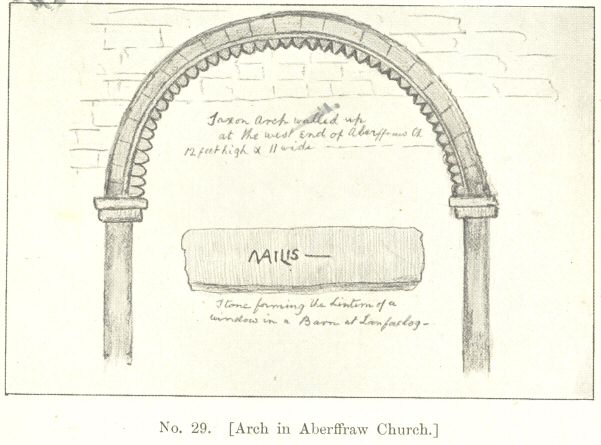 Saxon Arch walled up
at the west End of Aberffraw Ch
12 feet high & 11 wide
NAILIS —
Stone forming the Lintern of a
window in a Barn at Lanfaelog —
No. 29. [Arch in Aberffraw Church.]